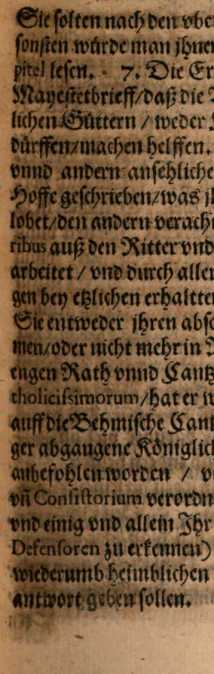 Sie solten nach den vbe
sonsten würde man jhnen
pitel lesen. 7. Die Er
Mayestetbrieff / daß die
lichen Güttern / weder
dürffen / machen helffen.
vnnd andern ansehliche
Hoffe geschrieben / was j
lobet / den andern veracht
ribus auß den Ritter vnd
arbeitet / vnd durch aller
gen bey etzlichen erhaltten
Sie entweder jhren absc
men / oder nicht mehr in
engen Rath vnnd Cantz
tholicissimorum / hat er
auff die Behmische Cant
ger abgangene Königlich
anbefohlen worden / v
vñ Consistorium verordn
vnd einig vnd allein Ihr
Defensoren zu erkennen)
wiederumb heimblichen
antwort geben sollen.